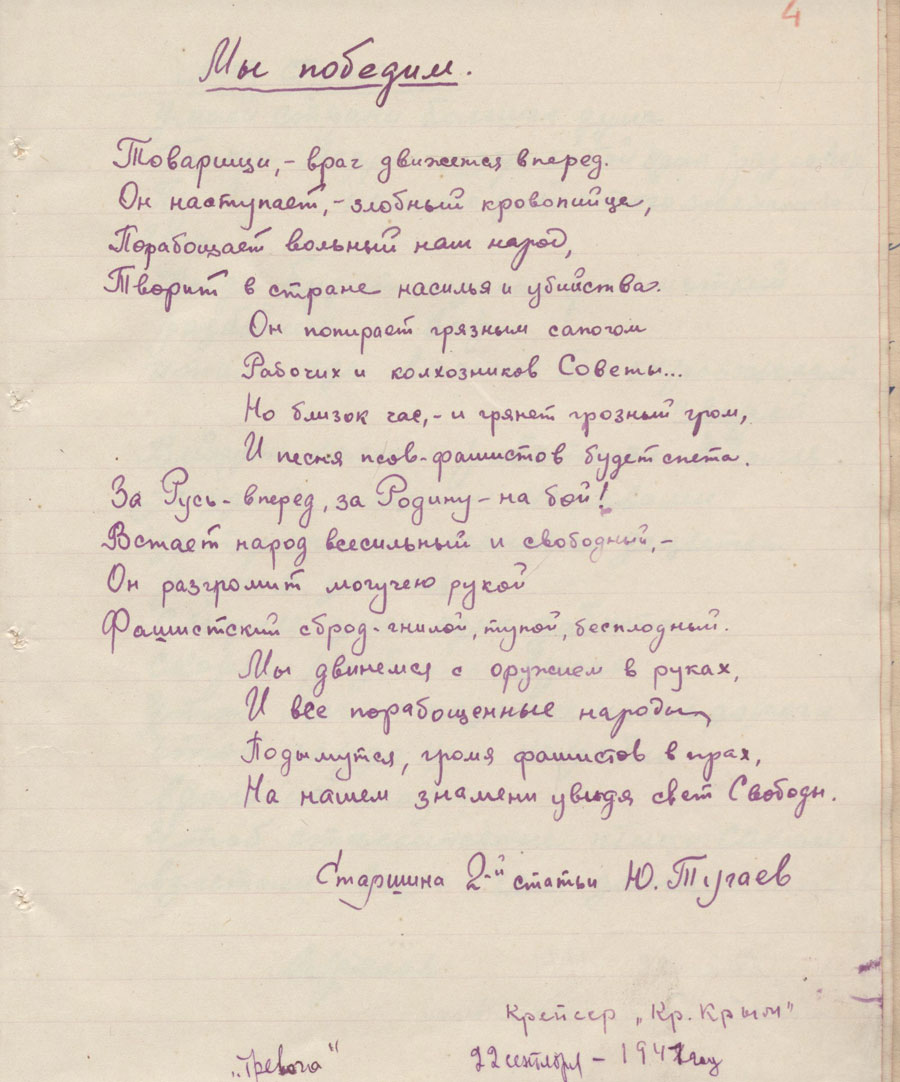 4
Мы победим.
Товарищи,- враг движется вперед.
Он наступает,- злобный кровопийца,
Порабощает вольный наш народ,
Творит в стране насилья и убийства.
Он попирает грязным сапогом
Рабочих и колхозников Советы...
Но близок час,- и грянет грозный гром,
И песня псов-фашистов будет спета.
За Русь- вперед, за Родину- на бой!
Встает народ всесильный и свободный,-
Он разгромит могучею рукой
Фашистский сброд- гнилой, тупой, бесплодный.
Мы двинемся с оружием в руках,
И все порабощенные народы,
Подымутся, громя фашистов в прах,
На нашем знамени увидя свет Свободы.
Старшина 2-й статьи Ю. Тугаев
Крейсер „Кр. Крым"
„Тревога" 22 сентября - 1941 год